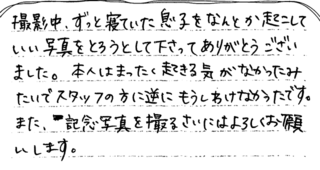 撮影中、ずっと寝ていた息子をなんとか起こして
いい写真をとろうとして下さってありがとうござい
ました。本人はまったく起きる気がなかったみ
たいでスタッフの方に逆にもうしわけなかったです。
また、記念写真を撮るさいにはよろしくお願
いします。